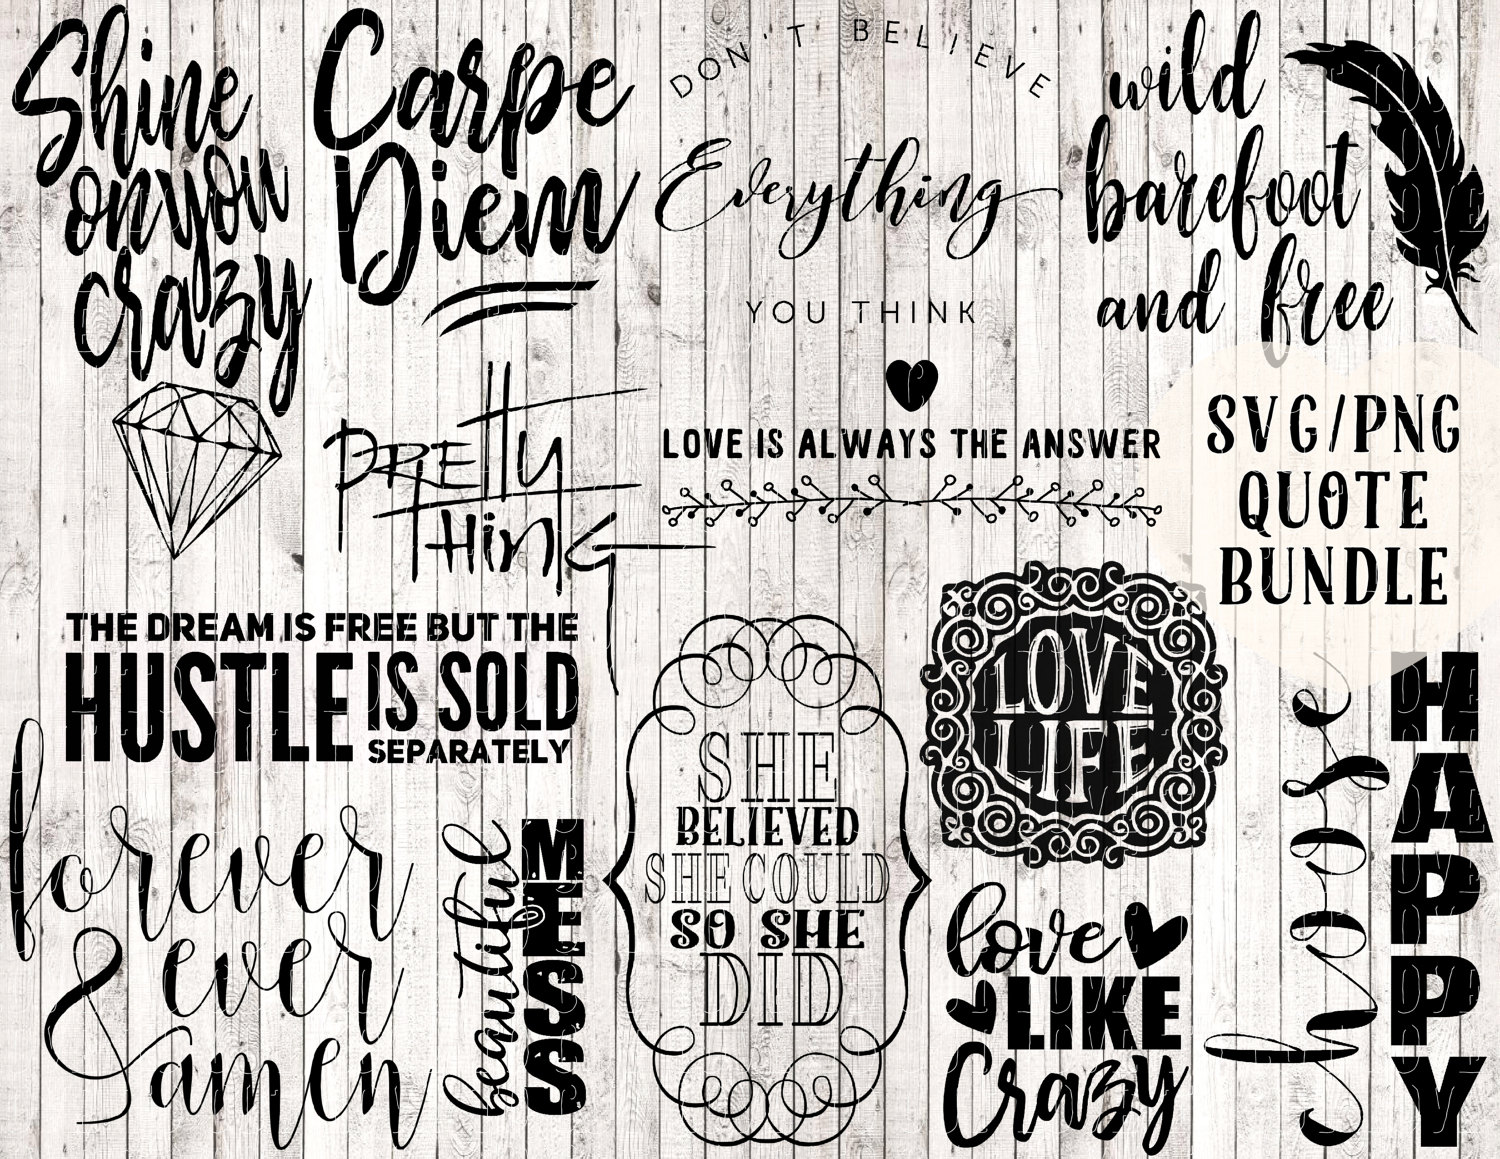 Shine
on you
crazy
Carpe
Diem
DON'T BELIEVE
Everything
YOU THINK
wild
barefoot
and free
PRETTY
THING
LOVE IS ALWAYS THE ANSWER
SVG/PNG
QUOTE
BUNDLE
THE DREAM IS FREE BUT THE
HUSTLE IS SOLD
SEPARATELY
forever
& ever
amen
beautiful
MESS
SHE
BELIEVED
SHE COULD
SO SHE
DID
LOVE
LIFE
love
LIKE
Crazy
choose
HAPPY